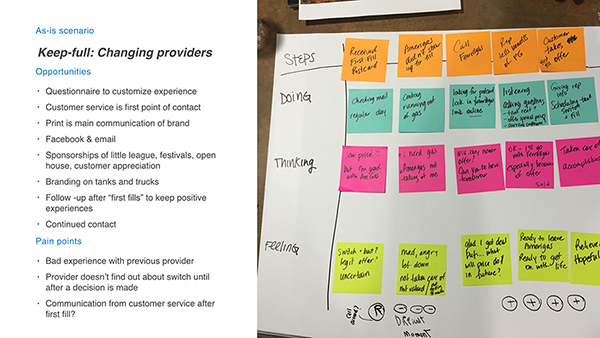 As-is scenario
Keep-full: Changing providers
Opportunities
· Questionnaire to customize experience
· Customer service is first point of contact
· Print is main communication of brand
· Facebook & email
· Sponsorships of little league, festivals, open
house, customer appreciation
· Branding on tanks and trucks
· Follow -up after “first fills” to keep positive
experiences
· Continued contact
Pain points
· Bad experience with previous provider
· Provider doesn’t find out about switch until
after a decision is made
· Communication from customer service after
first fill?
STEPS
Received
First Fill
Postcard
Amerigas
didn't show
up to fill
Call
Ferrellgas
Rep
tells benefits
of FG
Customer
takes
offer
DOING
Checking mail
regular day
Cooking
running out
of gas!
looking for postcard
look in
look online
listening
asking questions
Giving rep
info
Scheduling tank
Thinking
low price?
but I'm good
I need gas
Amerigas not
Will they honor
offer?
OK - I'll go
with Ferrellgas
especially because
of offer
Sold
Taken care of
accomplished
FEELING
Switch + save?
legit offer?
uncertain
mad, angry
let down
not taken care of
not valued
glad I got deal
but... what
will price be
in future?
Ready to leave
Amerigas
Ready to get
on with life
Relieved
Hopeful
Pivot
Moment